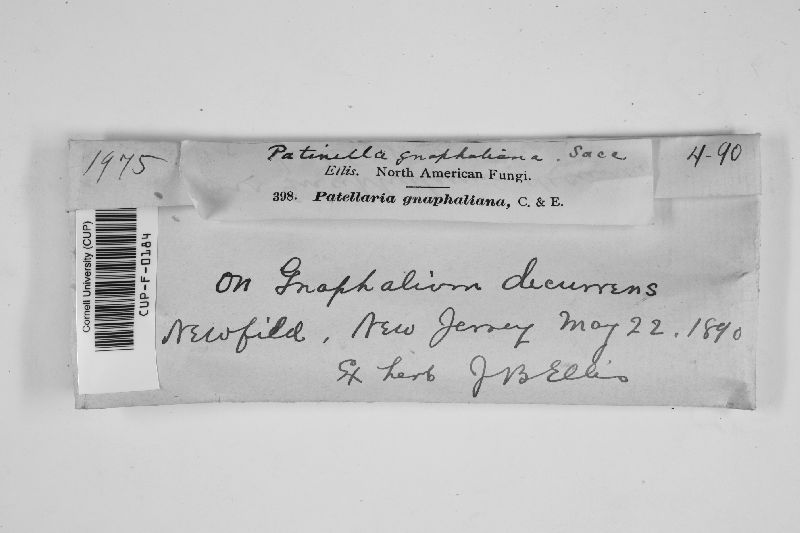 Patinella gnaphaliana. Sacc
1975
4-90
Ellis. North American Fungi.
398. Patellaria gnaphaliana, C. & E.
On Gnaphalium decurrens
Newfield, New Jersey May 22. 1890
Ex herb J B Ellis
Cornell University (CUP)
CUP-F-0184